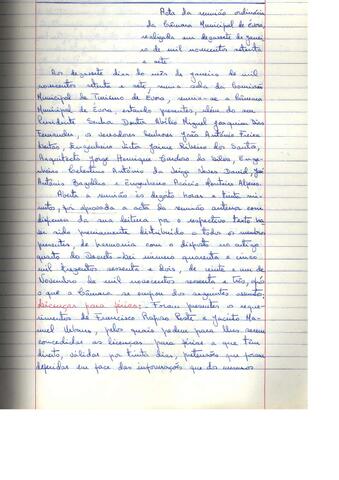 Acta da reunião ordinária
da Câmara Municipal de Évora,
realizada em dezassete de janei
ro de mil novecentos setenta
e sete
Aos dezassete dias do mês de janeiro de mil
novecentos setenta e sete, numa sala da Comissão
Municipal de Turismo de Évora, reuniu-se a Câmara
Municipal de Évora, estando presentes, além do seu
Presidente Senhor Doutor Abílio Miguel Joaquim Dias
Fernandes, os vereadores Senhores João António
Engenheiro Jaime Ribeiro dos Santos,
Arquitecto Jorge Henrique Cardoso da Silva, Enge-
nheiro Celestino António da Neves David, José
António Bagulho e Engenheiro Acácio Monteiro
Aberta a reunião às dezoito horas e trinta mi-
nutos, foi aprovada a acta da reunião anterior com
dispensa da sua leitura por o respectivo texto ha-
ver sido previamente distribuído a todos os membros
presentes, de harmonia com o disposto no artigo
quarto do Decreto-Lei número quarenta e cinco
mil trezentos sessenta e dois, de vinte e um de
Novembro de mil novecentos sessenta e três, após
o que a Câmara se ocupou dos seguintes assuntos
Licenças para férias: Foram presentes os reque-
rimentos de Francisco Raposo e Jacinto Ma-
nuel pelos quais pedem para lhes serem
concedidas as licenças para férias a que têm
direito, válidas por trinta dias, pretensões que foram
deferidas em face das informações que do mesmos